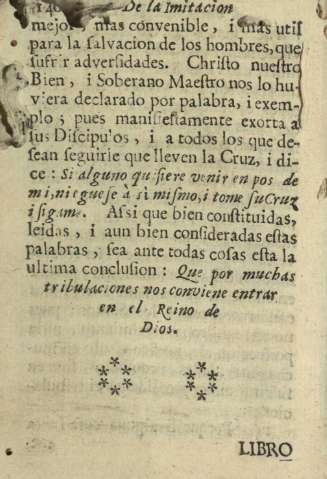 140 De la Imitacion
mejor, mas convenible, i mas util
para la salvacion de los hombres, que
sufrir adversidades. Christo nuestro
Bien, i Soberano Maestro nos lo hu-
viera declarado por palabra, i exem-
plo; pues manifiestamente exorta a
sus Discipulos, i a todos los que de-
sean seguirle que lleven la Cruz, i di-
ce: Si alguno quisiere venir en pos de
mi, nieguese à si mismo, i tome su Cruz
i sigame. Assi que bien constituidas,
leidas, i aun bien consideradas estas
palabras, sea ante todas cosas esta la
ultima conclusion: Que por muchas
tribulaciones nos conviene entrar
en el Reino de
Dios.
LIBRO